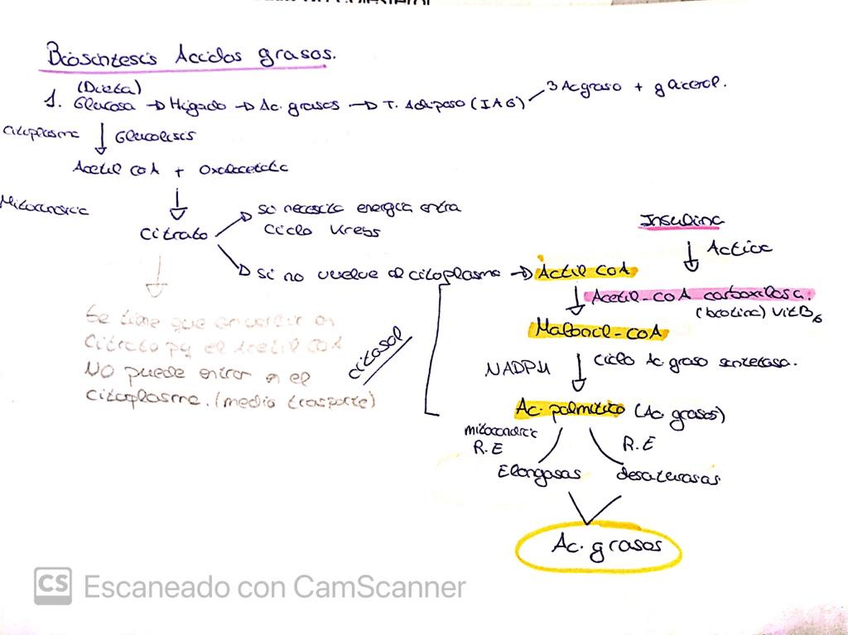 Biosíntesis Ácidos grasos.
(Dieta)
1. Glucosa → Hígado → Ac. grasos → T. Adiposo (IAG) 3 Ac graso + glicerol.
citoplasma Glucolisis
Acetil coA + Oxalacetato
Mitocondria
citrato
si necesita energía entra
Ciclo Krebs
si no vuelve al citoplasma → Acetil CoA
Insulina
Activa
Acetil-CoA carboxilasa.
(biotina) VitB6
Malonil-CoA
NADPH Ciclo Ac graso sintetasa.
citosol
Ac. palmitico (Ac grasos)
mitocondria
R.E
R.E
Elongasas desaturasas
Ac. grasos
Se tiene que convertir en
citrato pq el Acetil CoA
NO puede entrar en el
citoplasma. (medio trasporte)
CS Escaneado con CamScanner